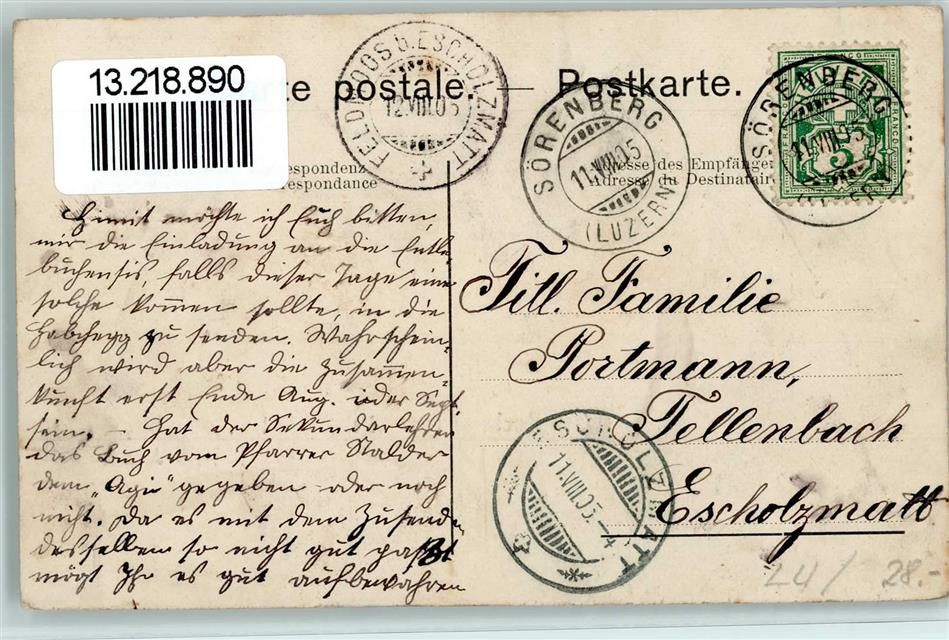 13.218.890
te postale. — Postkarte.
FELDMOOS b. ESCHOLZMATT
12.VIII.05
SÖRENBERG
11.VIII.05
(LUZERN)
SÖRENBERG
11.VIII.05
FRANCO
5
espondenz
respondance
Adresse des Empfänger
Adresse du Destinatair
Hiemit möchte ich Euch bitten,
mir die Einladung an die Entle
buchensis, falls dieser Tage eine
solche kommen sollte, in die
Habchegg zu senden. Wahrschein-
lich wird aber die Zusammen-
kunft erst Ende Aug. oder Sept.
sein. – Hat der Sekundarlehrer
das Buch vom Pfarrer Stalder
dem „Agie“ gegeben oder noch
nicht. Da es mit dem Zusenden
desselben so nicht gut paßt
mögt Ihr es gut aufbewahren
Titl. Familie
Portmann,
Tellenbach
Escholzmatt
ESCHOLZMATT
11.VIII.05.–4
24/ 28.-